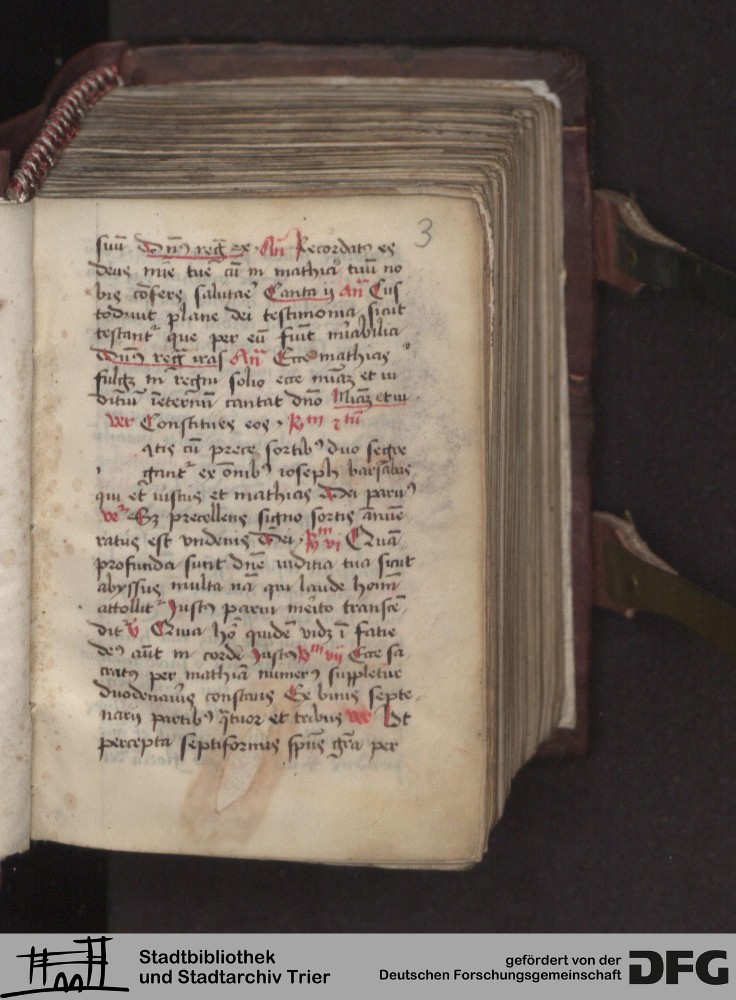 3
suū Dn̄s reg̃ ex. An̄ Recordatꝰ es
deus mīe tue cū in mathia tuū no
bis cōfers salutare Canta ij an̄ Cus
todiuit plane dei testimonia sicut
testantʳ que per eū fiūt mirabilia
Dn̄s reg̃ iras An̄ Ecce mathias
fulgꝫ in regni solio ecce et iu
diciū ieternū cantat dn̄o et iu
ver Constitues eos.
cū prece sortibꝰ duo segre
gantʳ ex ōnibꝰ ioseph barsabas
qui et iustus et mathias Dei paruꝰ
Sꝫ precellens signo sortis annue
ratus est vndenis Dei. vi Quā
profunda sunt dn̄e iudicia tua sicut
abyssus multa nā qui laude homī
attollitʳ Justo paruꝰ mērito transcē
ditʳ v̄ Quia hō quidē videt ī facie
deꝰ aūt in corde Justo vij Ecce sa
cratꝰ per mathiā numerꝰ suppletur
duodenariꝰ constans Ex binis septe
narij partibꝰ q̄tuor et tribus ver Ut
percepta septiformis sp̄us gr̄a per
Stadtbibliothek
und Stadtarchiv Trier
gefördert von der
Deutschen Forschungsgemeinschaft
DFG